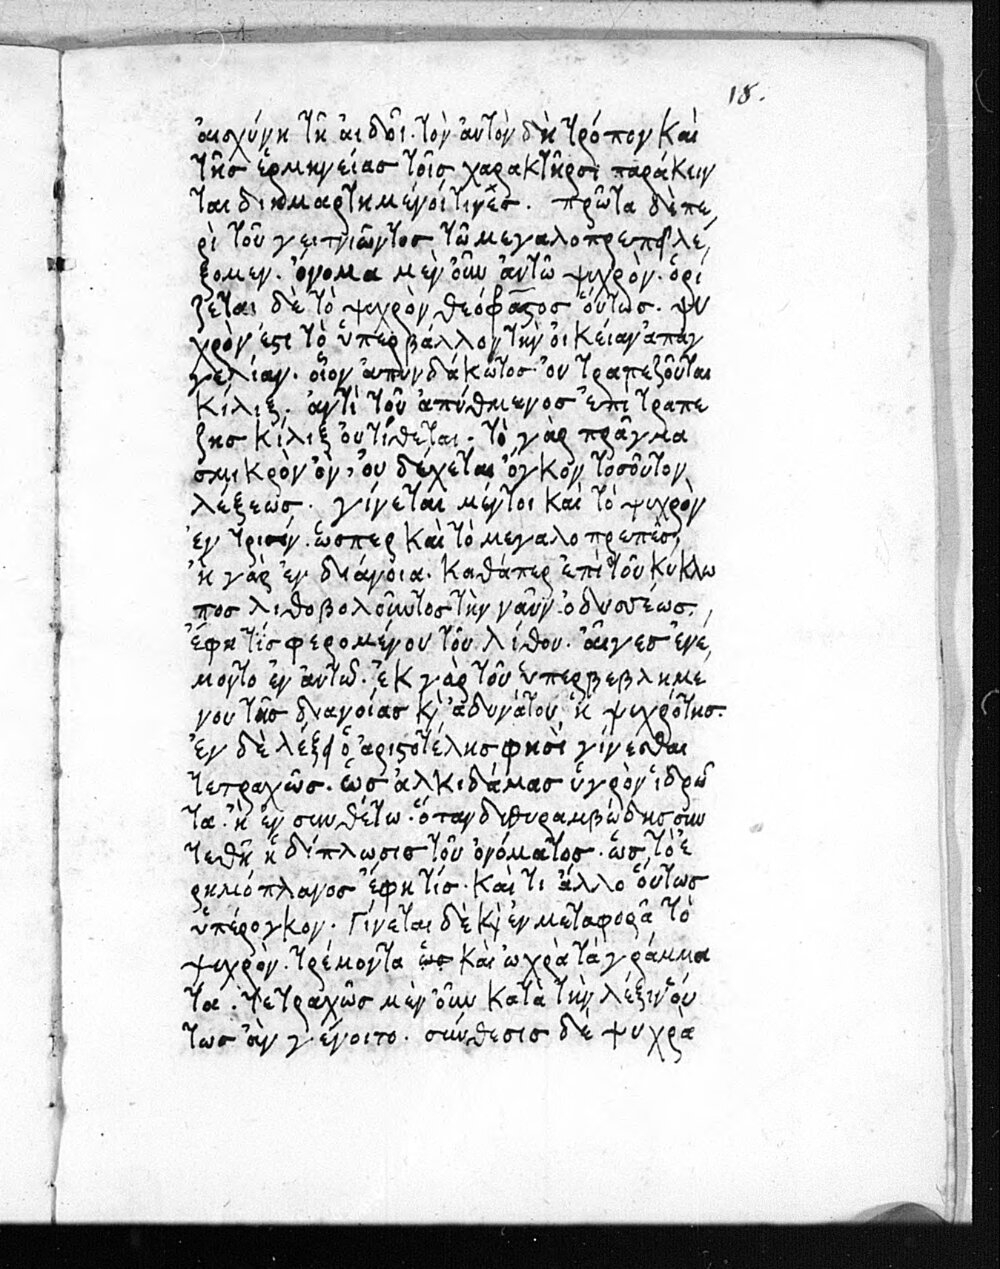 18.
αἰσχύνη τῆ αἰδοῖ. τὸν αὐτὸν δὴ τρόπον καὶ
τῆς ἑρμηνείας τοῖς χαρακτῆρσι παράκειν
ται διημαρτημένοί τινες. πρῶτα δὲ πε
ρὶ τοῦ γειτνιῶντος τῶ μεγαλοπρεπεῖ λέ
ξομεν. ὄνομα μὲν οὖν αὐτῶ ψυχρὸν. ὁρί
ζεται δὲ τὸ ψυχρὸν θεόφραστος οὕτως. ψυ
χρόν ἐστι τὸ ὑπερβάλλον τὴν οἰκείαν ἀπαγ
γελίαν. οἷον ἀπυνδάκωτος οὐ τραπεζοῦται
κύλιξ. ἀντὶ τοῦ ἀπύθμενος ἐπὶ τραπέ
ζης κύλιξ οὐ τίθεται. τὸ γὰρ πρᾶγμα
σμικρὸν ὂν, οὐ δέχεται ὄγκον τοσοῦτον
λέξεως. γίνεται μέντοι καὶ τὸ ψυχρὸν
ἐν τρισίν. ὥσπερ καὶ τὸ μεγαλοπρεπές,
ἢ γὰρ ἐν διάνοια. καθάπερ ἐπὶ τοῦ κύκλω
πος λιθοβολοῦντος τὴν ναῦν ὀδυσσέως,
ἔφη τίς φερομένου τοῦ λίθου. αἶγες ἐνέ
μοντο ἐν αὐτῶ. ἐκ γὰρ τοῦ ὑπερβεβλημέ
νου τῆς διανοίας κὶ ἀδυνάτου ἡ ψυχρότης.
ἐν δὲ λέξει ὁ ἀριστοτέλης φησὶ γίνεσθαι
τετραχῶς. ὡς ἀλκιδάμας ὑγρὸν ἱδρῶ
τα. ἢ ἐν συνθέτω. ὅταν διθυραμβώδης συν
τεθῆ ἡ δίπλωσις τοῦ ὀνόματος. ὡς τὸ ἐ
ρημόπλανος ἔφη τίς. καὶ τι ἄλλο οὕτως
ὑπέρογκον. Γίνεται δὲ κὶ ἐν μεταφορᾶ τὸ
ψυχρὸν. τρέμοντα καὶ ὠχρὰ τὰ γράμμα
τα. τετραχῶς μὲν οὖν κατὰ τὴν λέξιν οὕ
τως ἂν γένοιτο. σύνθεσις δὲ ψυχρὰ